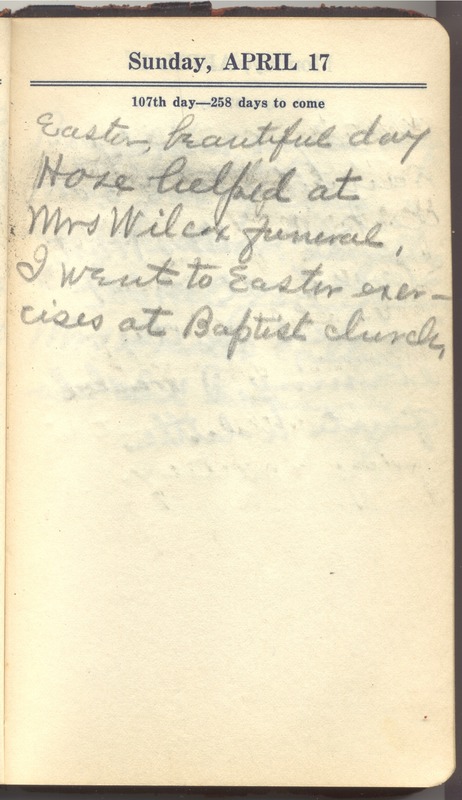 Sunday, APRIL 17
107th day—258 days to come
Easter, beautiful day
Hose helped at
Mrs Wilcox funeral,
I went to Easter exer-
cises at Baptist church,